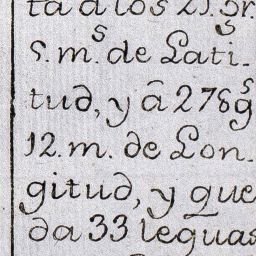 ta á los 25. gr.
5. m.ˢ de Lati-
tud, y â 278 gˢ
12. m. de Lon-
gitud, y que
da 33 leguas